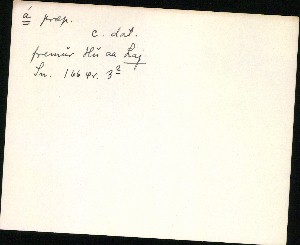 á præp.
c. dat.
fremür Hü aa Laj
Sn. 166 er. 3²